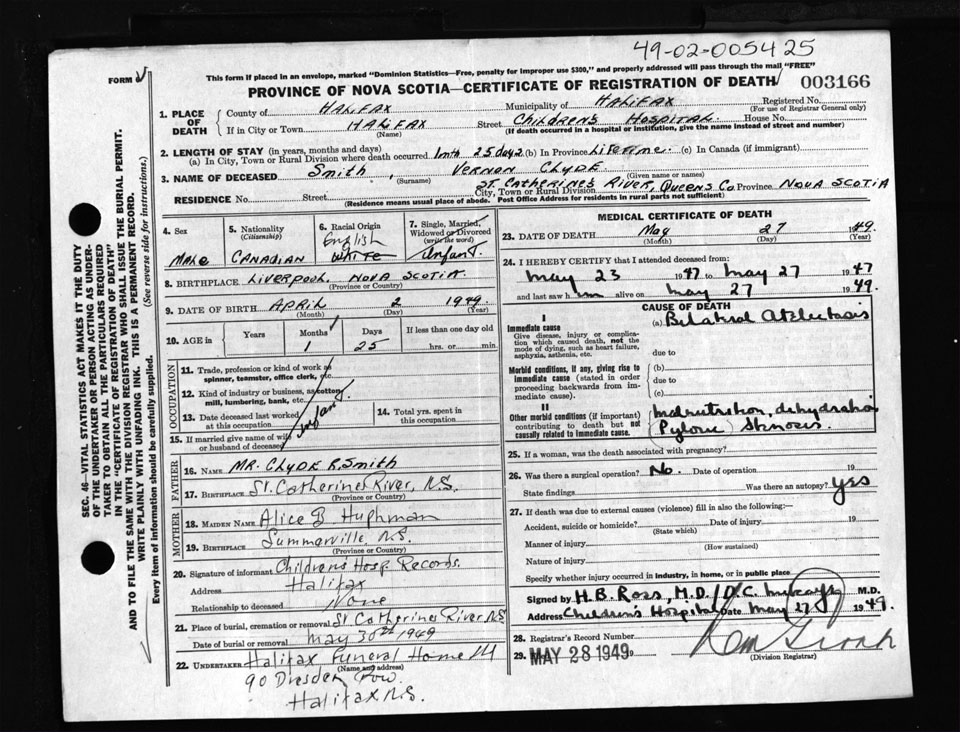 49-02-005425
This form if placed in an envelope, marked "Dominion Statistics—Free, penalty for improper use $300," and properly addressed will pass through the mail "FREE"
FORM
PROVINCE OF NOVA SCOTIA—CERTIFICATE OF REGISTRATION OF DEATH
003166
SEC. 46—VITAL STATISTICS ACT MAKES IT THE DUTY
OF THE UNDERTAKER OR PERSON ACTING AS UNDER-
TAKER TO OBTAIN ALL THE PARTICULARS REQUIRED
IN THE "CERTIFICATE OF REGISTRATION OF DEATH"
AND TO FILE THE SAME WITH THE DIVISION REGISTRAR WHO SHALL ISSUE THE BURIAL PERMIT.
WRITE PLAINLY WITH UNFADING INK. THIS IS A PERMANENT RECORD.
Every item of information should be carefully supplied. (See reverse side for instructions.)
1. PLACE OF DEATH
County of HALIFAX Municipality of HALIFAX Registered No.
(For use of Registrar General only)
If in City or Town HALIFAX Street CHILDREN'S HOSPITAL House No.
(Name) (If death occurred in a hospital or institution, give the name instead of street and number)
2. LENGTH OF STAY (in years, months and days)
(a) In City, Town or Rural Division where death occurred 1 mth 25 days (b) In Province Lifetime. (c) In Canada (if immigrant)
3. NAME OF DECEASED Smith, VERNON CLYDE
(Surname) (Given name or names)
RESIDENCE No. Street City, Town or Rural Division ST. CATHERINES RIVER, QUEENS Co Province NOVA SCOTIA
(Residence means usual place of abode. Post Office Address for residents in rural parts not sufficient)
4. Sex
MALE
5. Nationality
(Citizenship)
CANADIAN
6. Racial Origin
English
WHITE
7. Single, Married,
Widowed or Divorced
(write the word)
Infant.
8. BIRTHPLACE LIVERPOOL, NOVA SCOTIA.
(Province or Country)
9. DATE OF BIRTH APRIL 2 1949.
(Month) (Day) (Year)
10. AGE in
Years Months Days If less than one day old
1 25 hrs. or min.
OCCUPATION
11. Trade, profession or kind of work as
spinner, teamster, office clerk, etc.
12. Kind of industry or business, as cotton
mill, lumbering, bank, etc.
Infant
13. Date deceased last worked
at this occupation
14. Total yrs. spent in
this occupation
15. If married give name of wife
or husband of deceased
FATHER
16. NAME MR. CLYDE R. Smith
17. BIRTHPLACE St. Catherines River, N.S.
(Province or Country)
MOTHER
18. MAIDEN NAME Alice B Huphman
19. BIRTHPLACE Summerville N.S.
(Province or Country)
20. Signature of informant Childrens Hosp Records.
Address Halifax
Relationship to deceased None
21. Place of burial, cremation or removal St Catherines River N.S
Date of burial or removal may 30th 1949
22. UNDERTAKER Halifax Funeral Home
(Name and address)
90 Dresden Row.
Halifax N.S.
MEDICAL CERTIFICATE OF DEATH
23. DATE OF DEATH May 27 1949.
(Month) (Day) (Year)
24. I HEREBY CERTIFY that I attended deceased from:
May 23 1947 to May 27 1947
and last saw him alive on May 27 1949.
CAUSE OF DEATH
I
Immediate cause
Give disease, injury or complica-
tion which caused death, not the
mode of dying, such as heart failure,
asphyxia, asthenia, etc.
(a) Bilateral Atelectasis
due to
Morbid conditions, if any, giving rise to
immediate cause (stated in order
proceeding backwards from im-
mediate cause).
(b)
due to
(c)
II
Other morbid conditions (if important)
contributing to death but not
causally related to immediate cause.
Malnutrition, dehydration
Pyloric Stenosis.
25. If a woman, was the death associated with pregnancy?
26. Was there a surgical operation? No. Date of operation 19
State findings Was there an autopsy? yes
27. If death was due to external causes (violence) fill in also the following:
Accident, suicide or homicide? Date of injury 19
(State which)
Manner of injury
(How sustained)
Nature of injury
Specify whether injury occurred in industry, in home, or in public place
Signed by H.B. Ross, M.D. / D.C. M.D.
Address Children's Hospital Date May 27 1949.
28. Registrar's Record Number
29. MAY 28 1949
(Division Registrar)